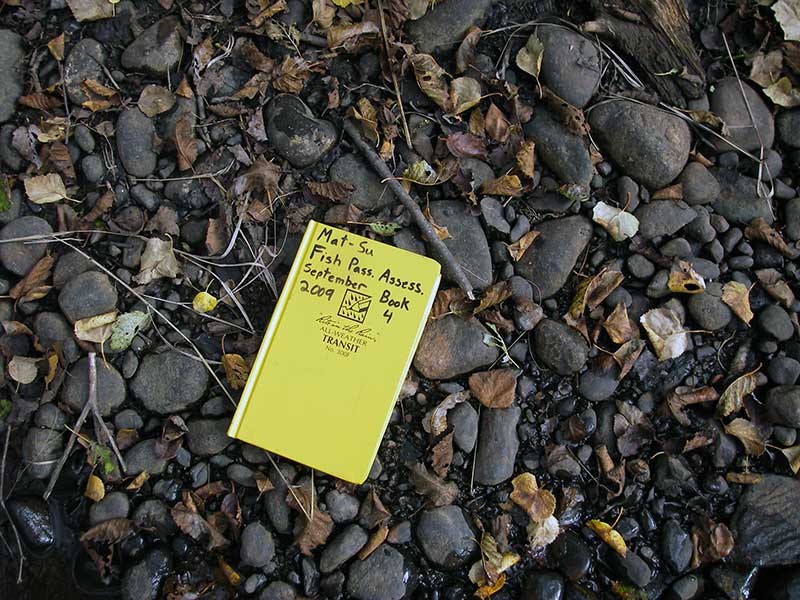 Mat-Su
Fish Pass. Assess.
September Book
2009 4
"Rite in the Rain"
ALL-WEATHER
TRANSIT
No. 300F